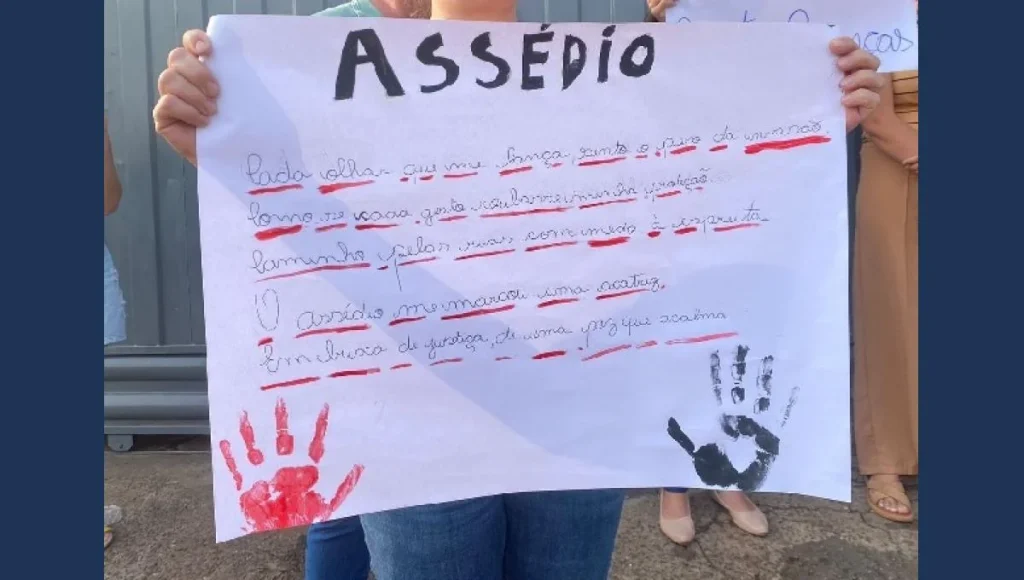 ASSÉDIO
Cada olhar que me lança, sinto o peso da invasão.
Como se cada gesto roubasse minha proteção.
Caminho pelas ruas com medo à espreita
O assédio me marcou uma cicatriz.
Em busca de justiça, de uma paz que acalma